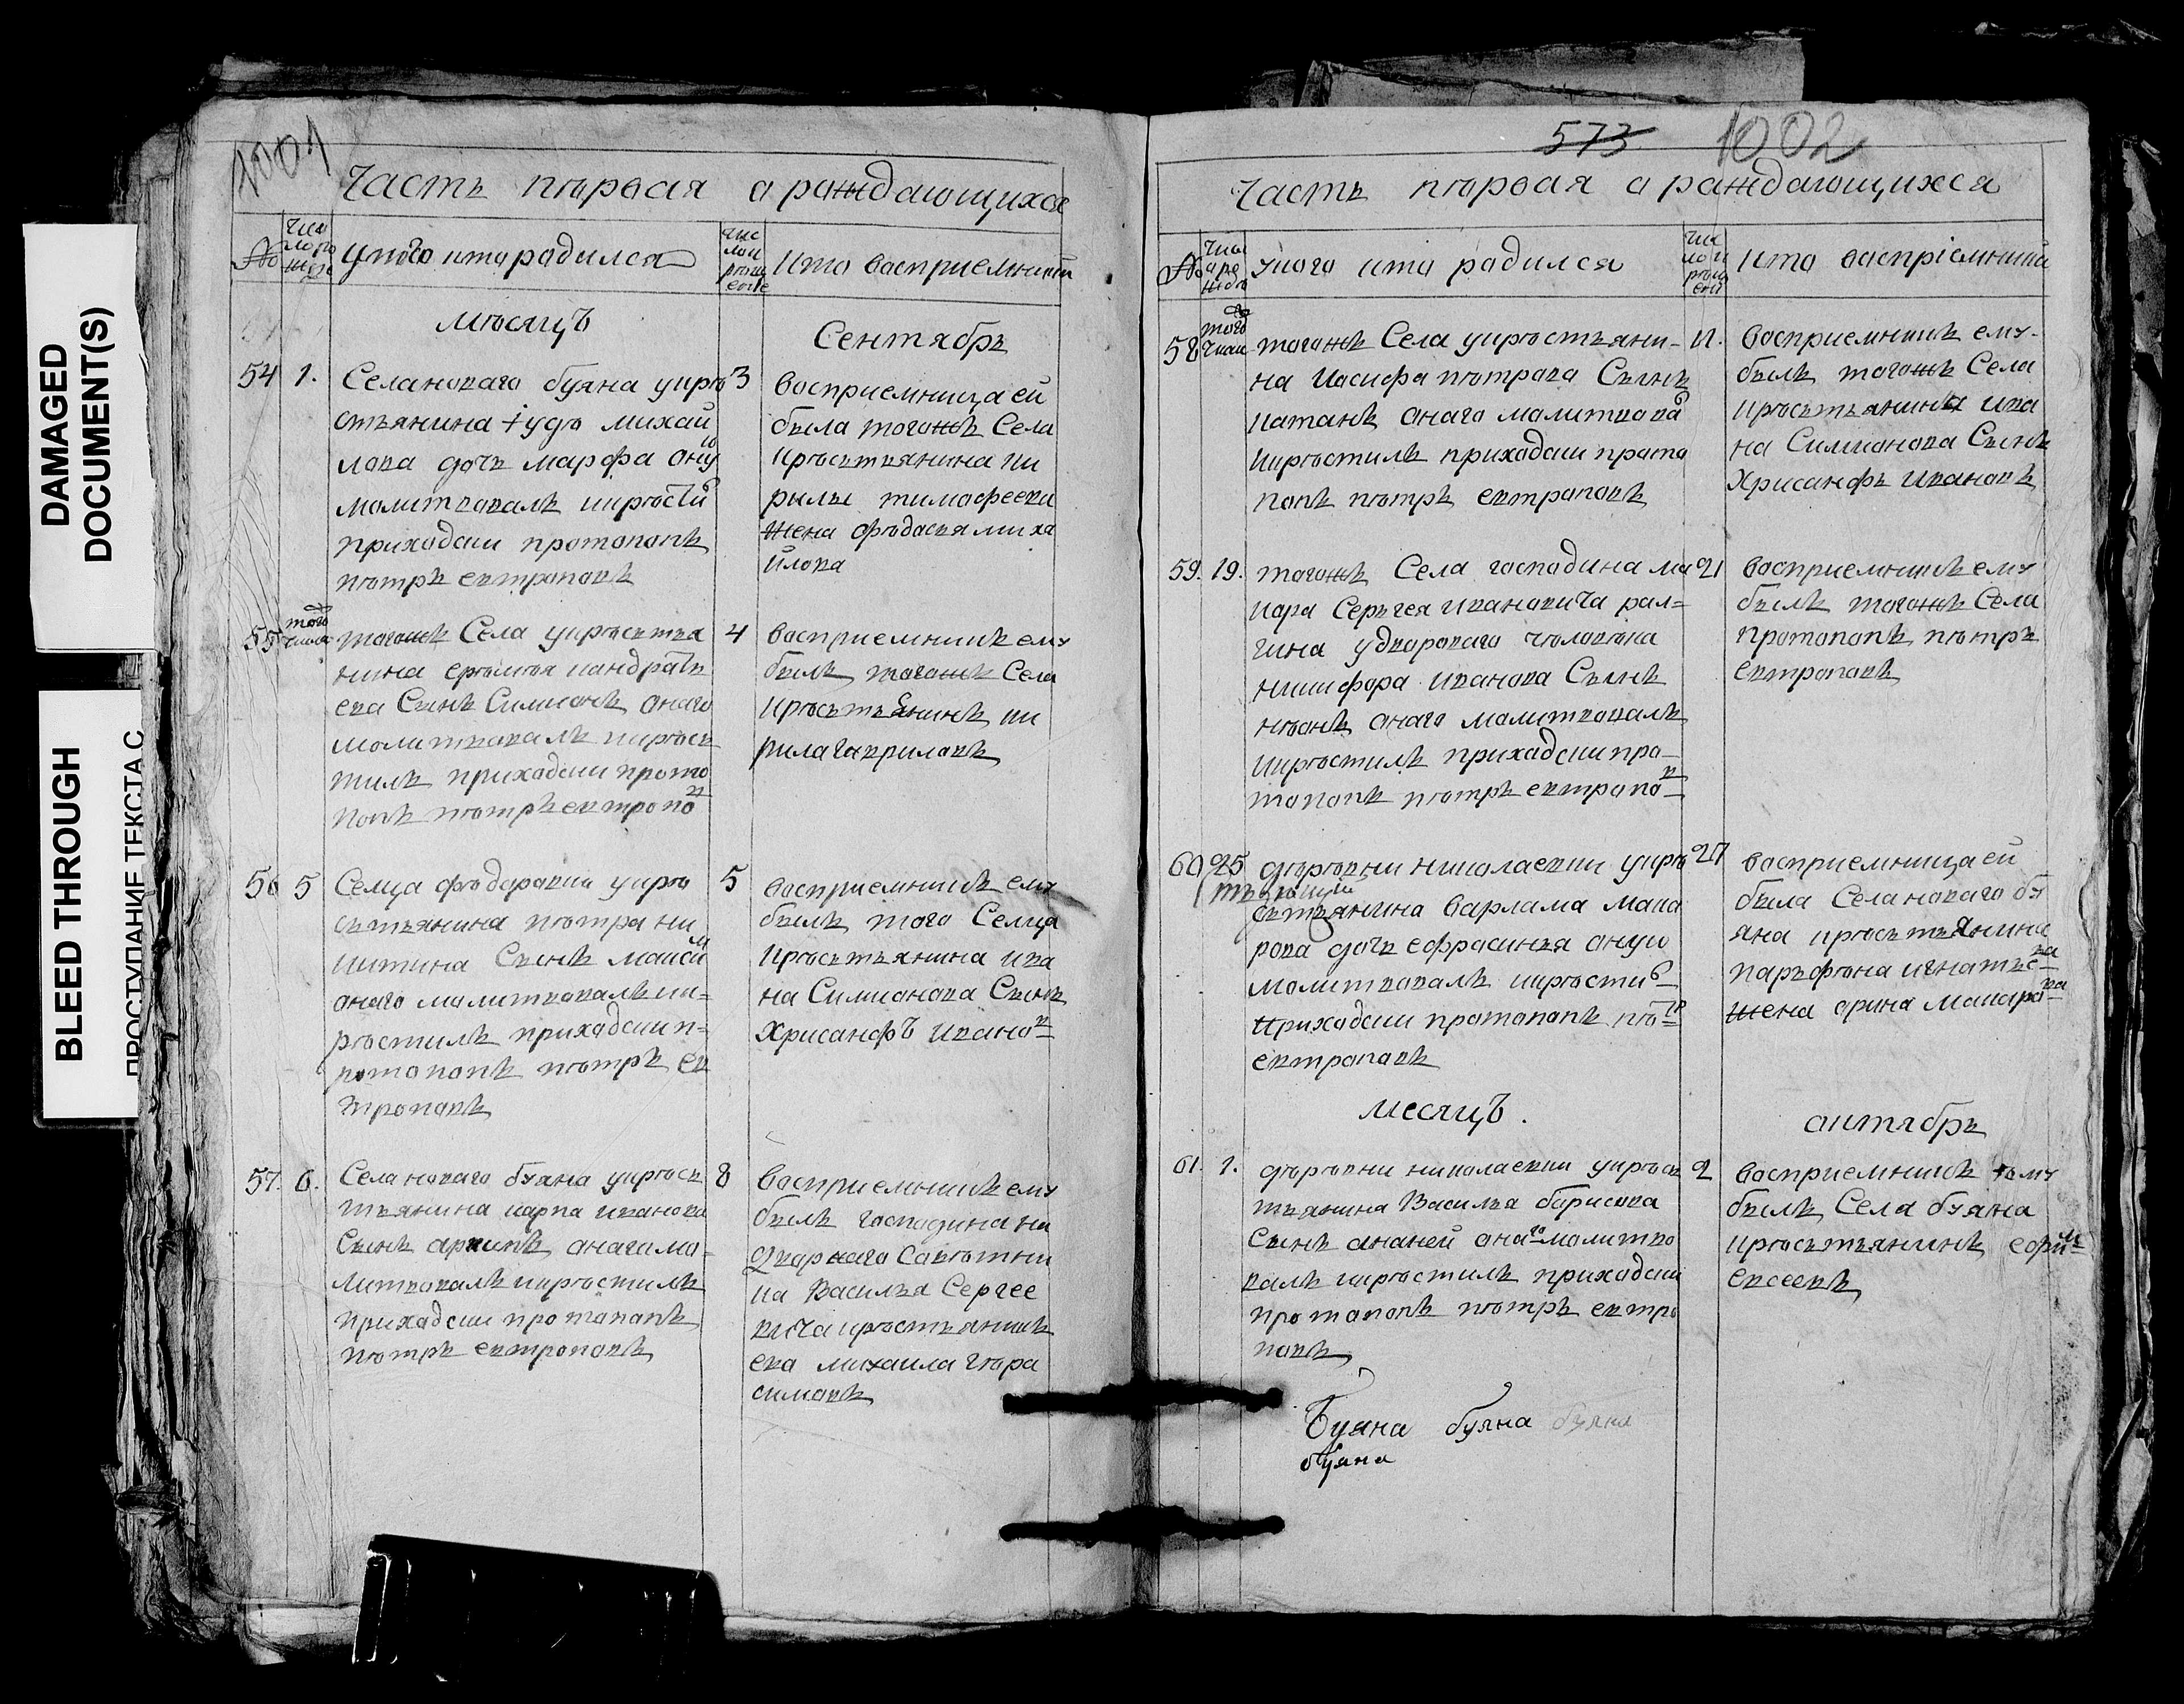 DAMAGED
DOCUMENT(S)
BLEED THROUGH
ПРОСТУПАНИЕ ТЕКСТА С
1001
Часть первая о раждающихся
№
число рожде
у кого кто радился
число крещение
кто восприемники
месяцъ
Сентябрь
54
1.
Села новаго буяна у кре
стьянина
михай
лова дочь марфа ону
ю
молитвовалъ и крести
приходски протопопъ
петръ евтроповъ
3
восприемница ей
была тогожъ Села
крестьянина ки
рылы тимофееви
жена федосья миха
йлова
55
того числа
тогожъ Села у кресьтья
нина еремея кандрать
ева Сынъ Симионъ онаго
молитвовалъ и крес
тилъ приходски прото
попъ петръ евтропо
в
4
восприемникъ ему
былъ тогожъ Села
кресьтьянинъ ки
рила гавриловъ
56
5
Селца федоровки у кре
сьтьянина петра ни
китина Сынъ макси
м
онаго молитвовалъ и к=
рестилъ приходски п=
ротопопъ петръ ев
троповъ
5
восприемникъ ему
былъ того Селца
кресьтьянина ива
на Симионова Сынъ
Хрисанфъ ивано
в
57.
6.
Села новаго буяна у крес
тьянина карпа иванова
Сынъ архипъ онаго мо=
литвовалъ и крестилъ
приходски протопопъ
петръ евтроповъ
8
восприемникъ ему
былъ господина на
дворнаго Саветни
ка Василья Сергее
вича крестьянинъ
ево михаила гера
симовъ
573
1002
Часть первая о раждающихся
№
у кого кто родился
кто воспріемники
58
того числа
тогожъ Села у крестьяни=
на иосифа петрова Сынъ
патапъ онаго молитвова
и крестилъ приходски прото
попъ петръ евтроповъ
восприемникъ ему
былъ тогожъ Села
кресьтьянина ива
на Симионова Сынъ
Хрисанфъ ивановъ
59.
19.
тогожъ Села господина ма
иора Серьгея ивановича рал=
гина у двороваго человека
никифора иванова Сынъ
онаго молитвовалъ
и крестилъ приходски про=
топопъ петръ евтропо
в
21
восприемникъ ему
былъ тогожъ Села
протопопъ петръ
евтроповъ
60
25
деревни николаевки у кре
сьтьянина варлама мака
рова дочь ефросинья оную
молитвовалъ и крести
приходски протопопъ пе
тр
евтроповъ
27
восприемница ей
была Села новаго бу
яна кресьтьянина
парьфена игнатье
ва
жена орина макаро
ва
месяцъ.
октябрь
61.
1.
деревни николаевки у крес
тьянина Василья борисова
Сынъ ананей она
го
молитво
валъ и крестилъ приходски
протопопъ петръ евтро
повъ
2
восприемникъ ему
былъ Села буяна
кресьтьянинъ ефи
м
евсеевъ
Буяна буяна буяна
буяна